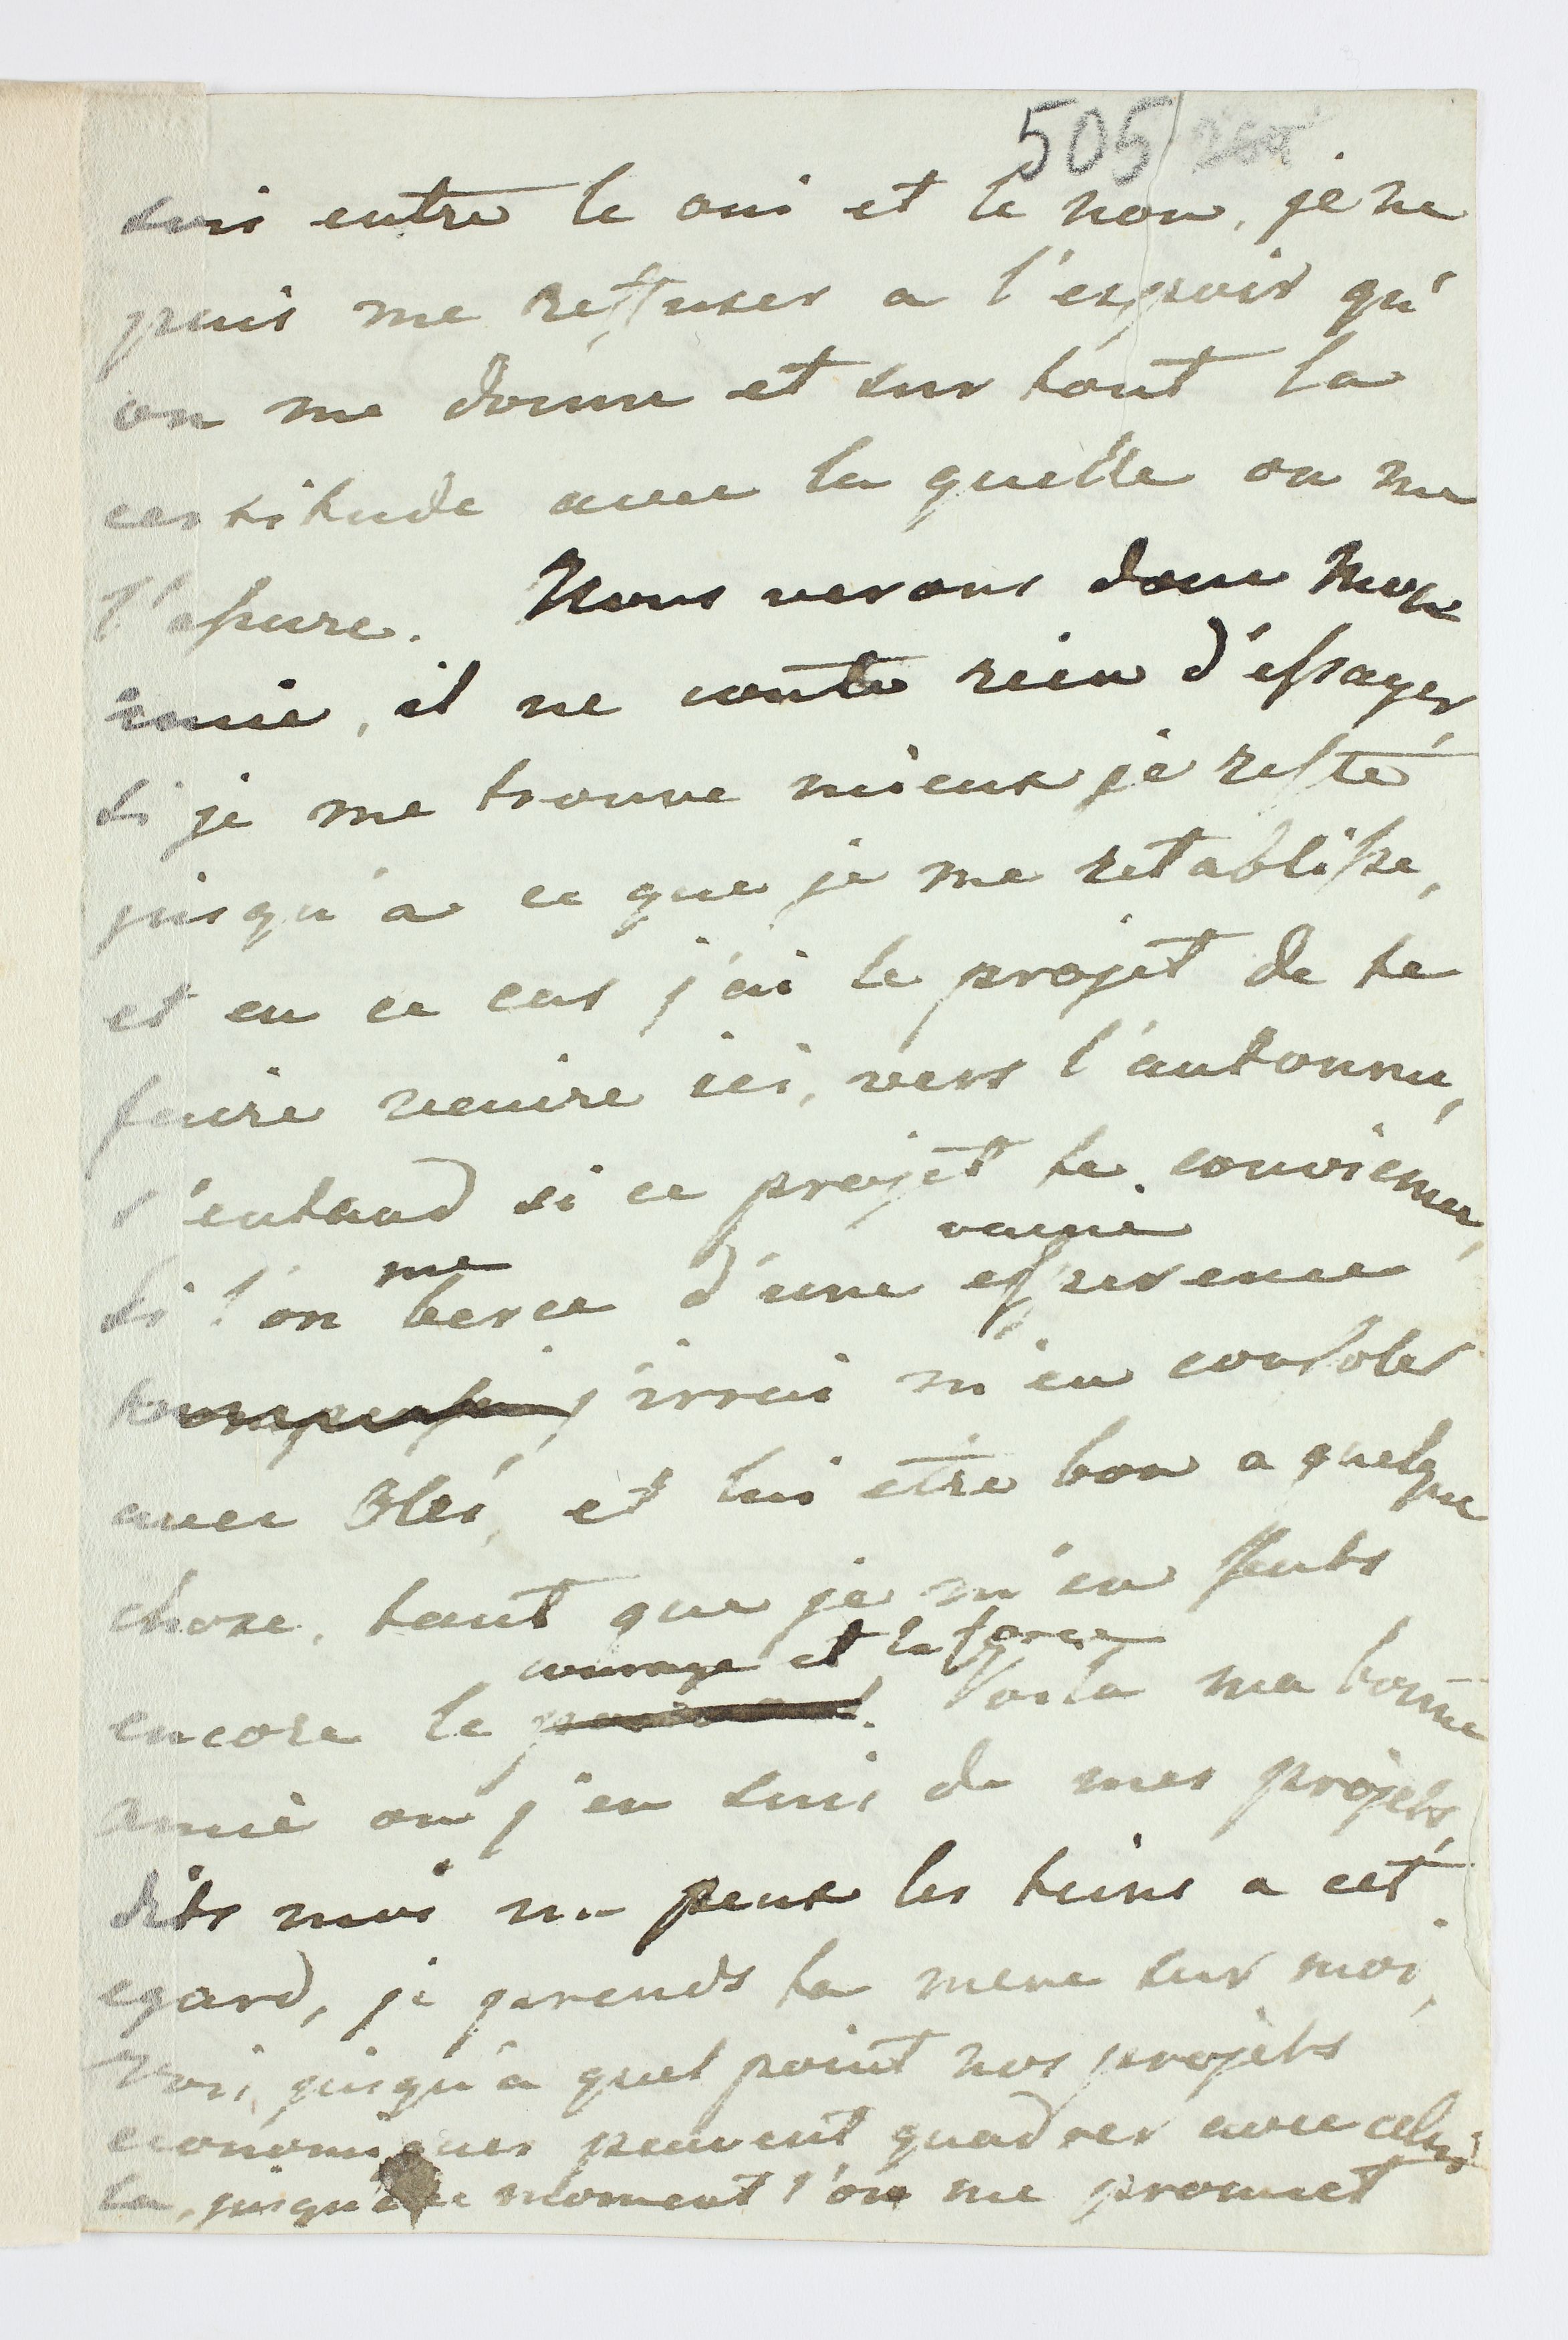 505
suis entre le oui et le non, je ne
puis me reffuser a l'espoir qu'
on me donne et sur tout la
certitude avec la quelle on me
l'assure. Nous verons donc mon
amie, il ne coute rien d'essayer,
si je me trouve mieux je reste
jusqu'a ce que je me retablisse,
et en ce cas j'ai le projet de te
faire venire ici, vers l'automne,
s'entend si ce projet te convienne,
vaine
me
si l'on berce d'une esperence
j'irrai m'en consoler
avec Oles, et lui etre bon a quelque
chose, tant que je m'en sents
courage et la force
encore le Voila ma bonne
amie ou j'en suis de mes projets,
dits moi un peux les tiens a cet
egard, je prends ta mere sur moi,
Voi, jusqu'a quel point nos projets
economiques peuvent quadrer avec celui
la, jusqu'a ce moment l'on me promet